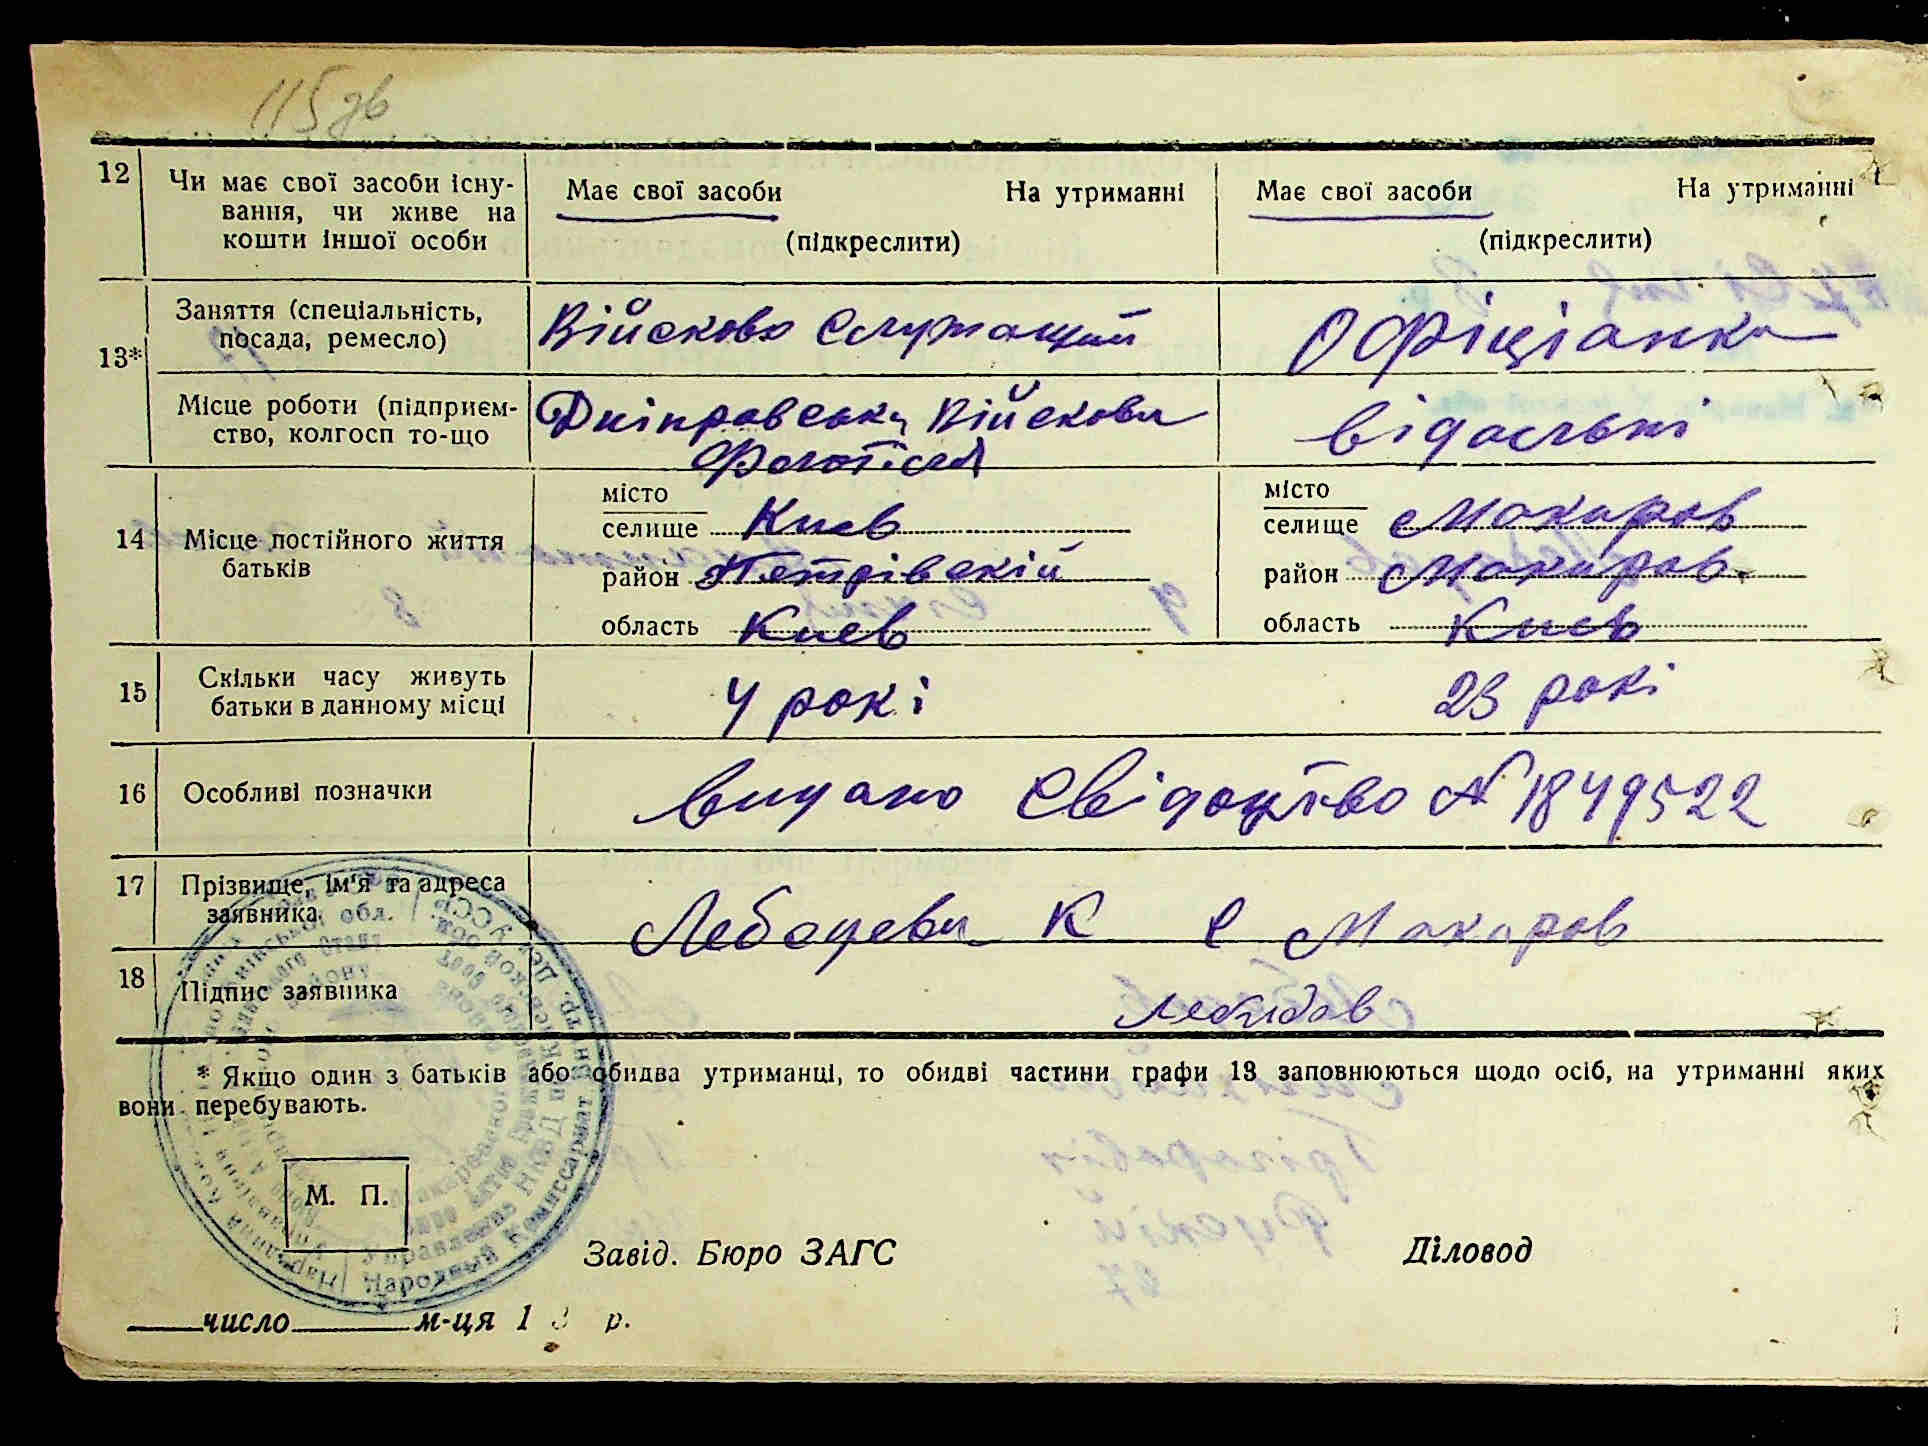 115 зв
12 Чи має свої засоби існу- Має свої засоби На утриманні Має свої засоби На утриманні
вання, чи живе на
кошти іншої особи (підкреслити) (підкреслити)
Заняття (спеціальність, Війсково Служащий Офіціанка
посада, ремесло)
13*
Місце роботи (підприєм- Дніправська Війскова відальні
ство, колгосп то-що Флотілія
місто місто
селище Киев селище Макаров
14 Місце постійного життя
батьків район Петрівскій район Макаров
область Киев область Киев
15 Скільки часу живуть 4 рокі 23 рокі
батьки в данному місці
16 Особливі позначки видано Свідоцтво № 1849522
17 Прізвище, ім'я та адреса
заявника. Лебедева К с Макаров
18 Підпис заявника
* Якщо один з батьків або обидва утриманці, то обидві частини графи 13 заповнюються щодо осіб, на утриманні яких
вони перебувають.
М. П.
Завід. Бюро ЗАГС Діловод
число м-ця 1 3 р.